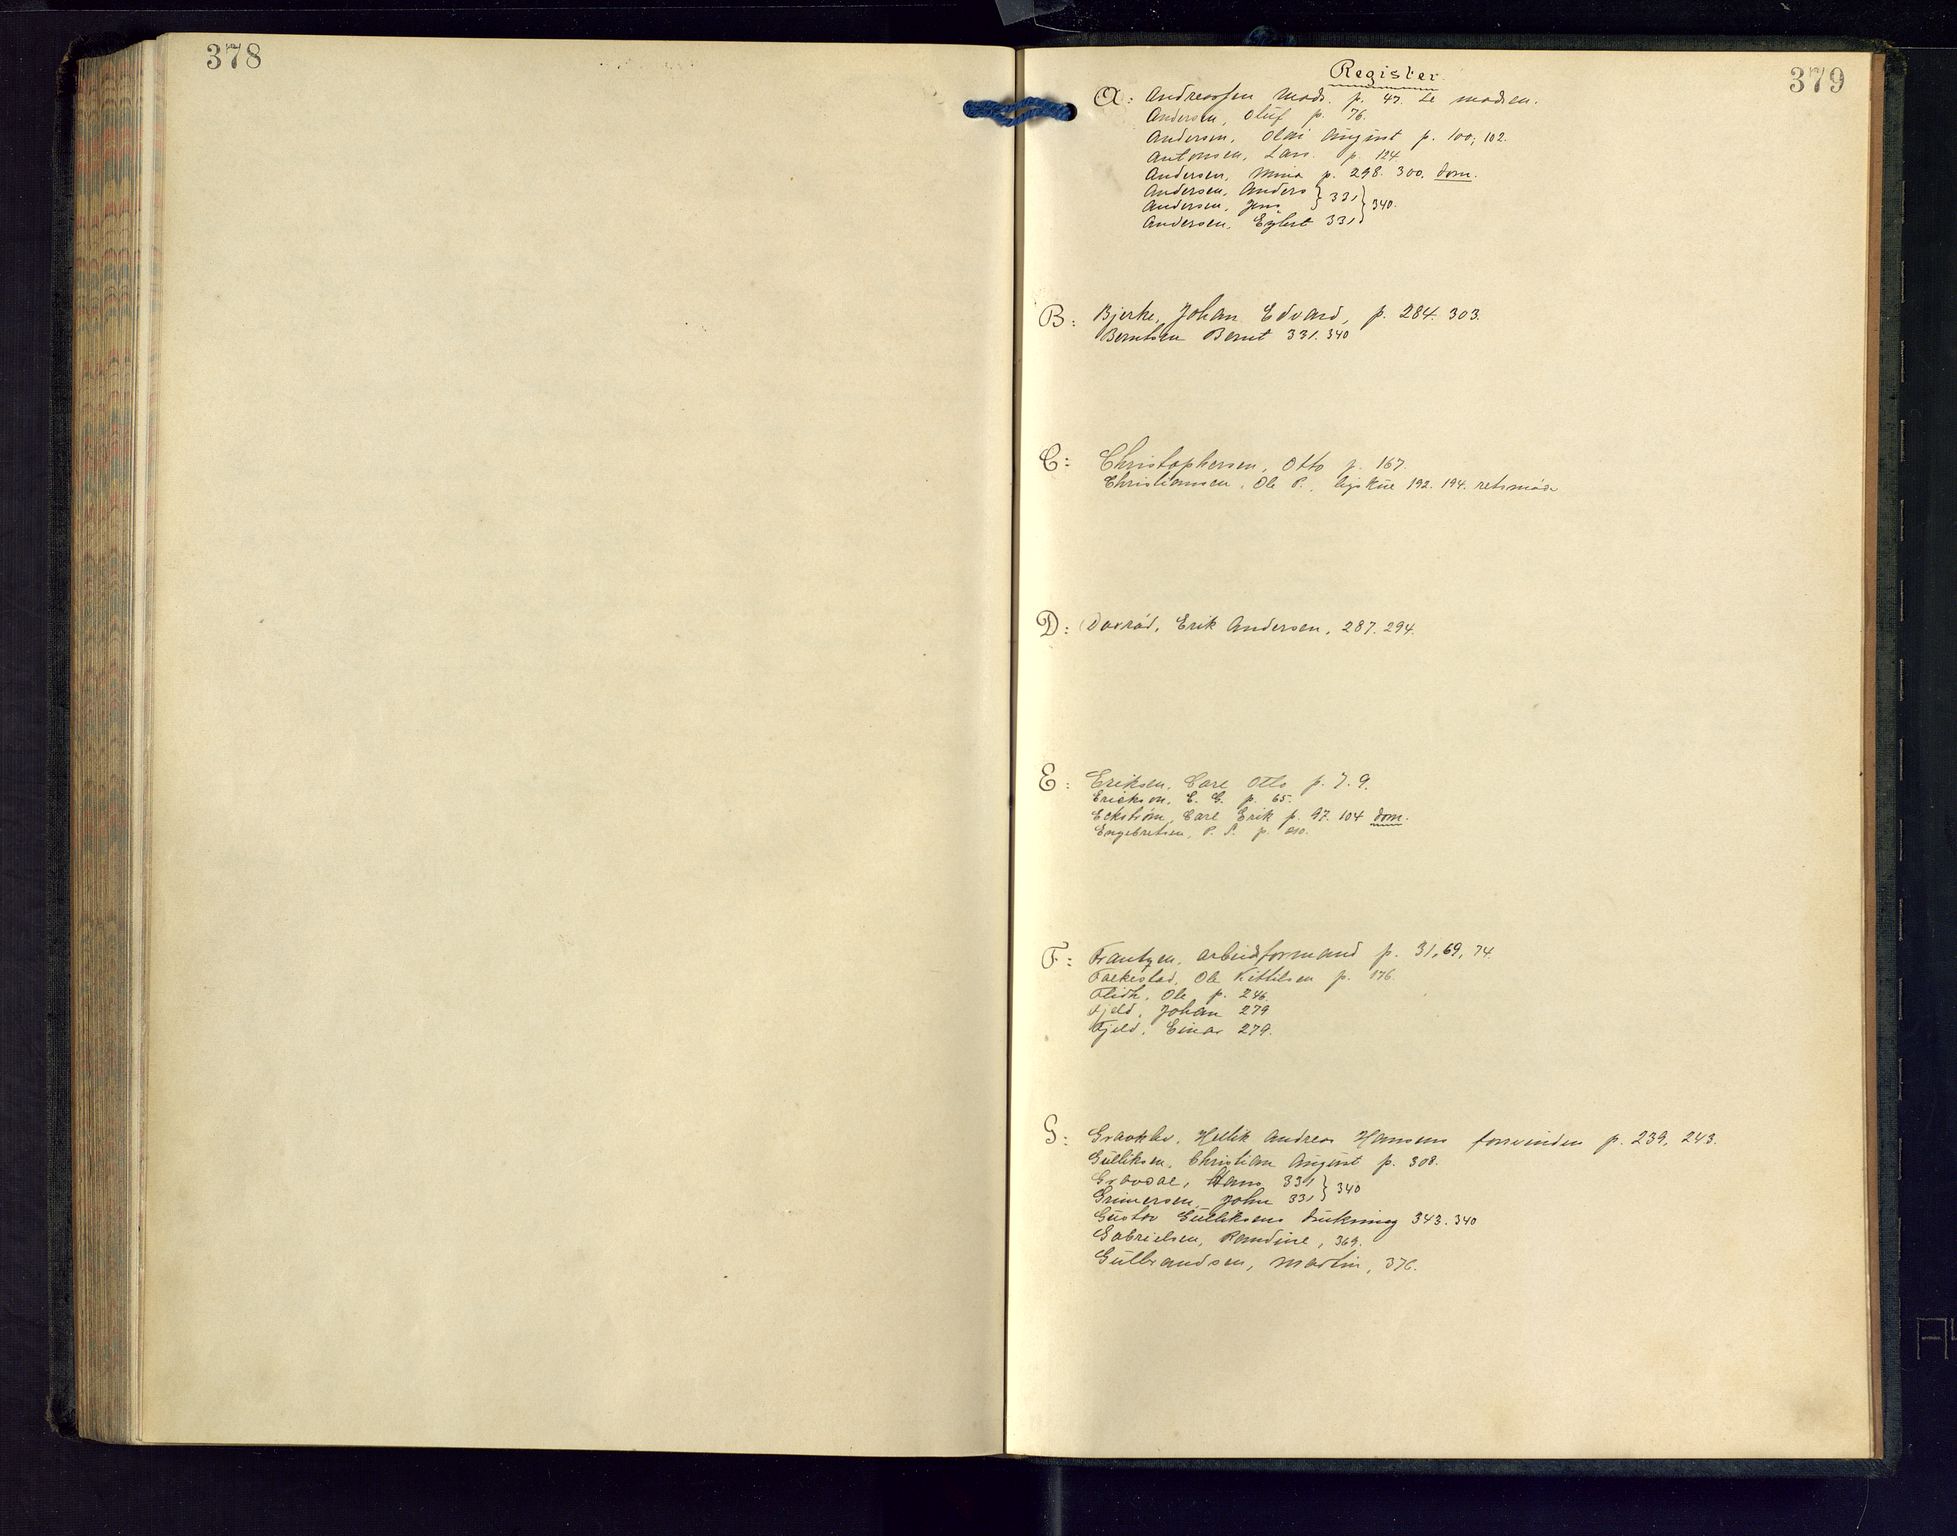 378
379
Register.
A: Andreassen Mads. p. 47. Se Madsen.
Andersen, Oluf p. 76.
Andersen, Olai August p. 100, 102.
Antonsen, Lars. p. 124
Andersen, Mina p. 298. 300. dom.
Andersen, Anders } 331 } 340.
Andersen, Jens
Andersen, Eylert 331
B: Bjerke, Johan Edvard, p. 284. 303.
Berntsen Bernt 331. 340
C: Christophersen, Otto p. 167.
Christiansen, Ole P., ligskue 192. 194. retsmøde
D: Davrød, Erik Andersen, 287. 294.
E: Eriksen, Carl Otto p. 7. 9.
Erickson, E. G. p. 65.
Eckstrøm, Carl Erik p. 97. 104 dom.
Engebretsen, P. S. p. 210.
F: Frantzen, arbeidsformand p. 31, 69, 74.
Falkestad, Ole Kittilsen p. 176.
Flidh, Ole p. 246.
Fjeld, Johan 279
Fjeld, Einar 279.
G: Gravklev, Hellik Andreas Hansens forsvinden p. 239, 243.
Gulliksen, Christian August p. 308.
Gravdal, Hans 331 } 340
Grimersen, John 331
Gustav Gulliksens drukning 343. 340
Gabrielsen, Randine, 369.
Gulbrandsen, Martin, 376.